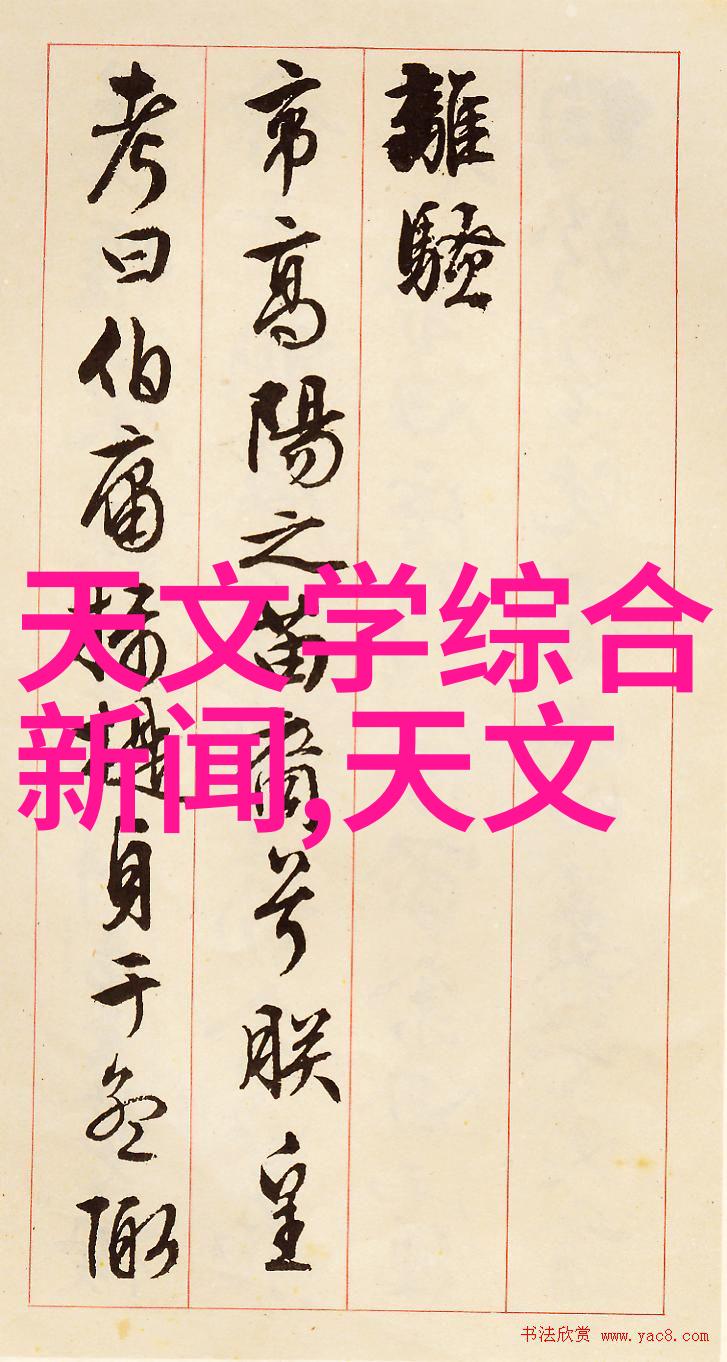 離騷
帝高陽之苗裔兮朕皇
考曰伯庸攝提貞于孟陬
天文学综合
新闻,天文
书法欣赏 www.yac8.com